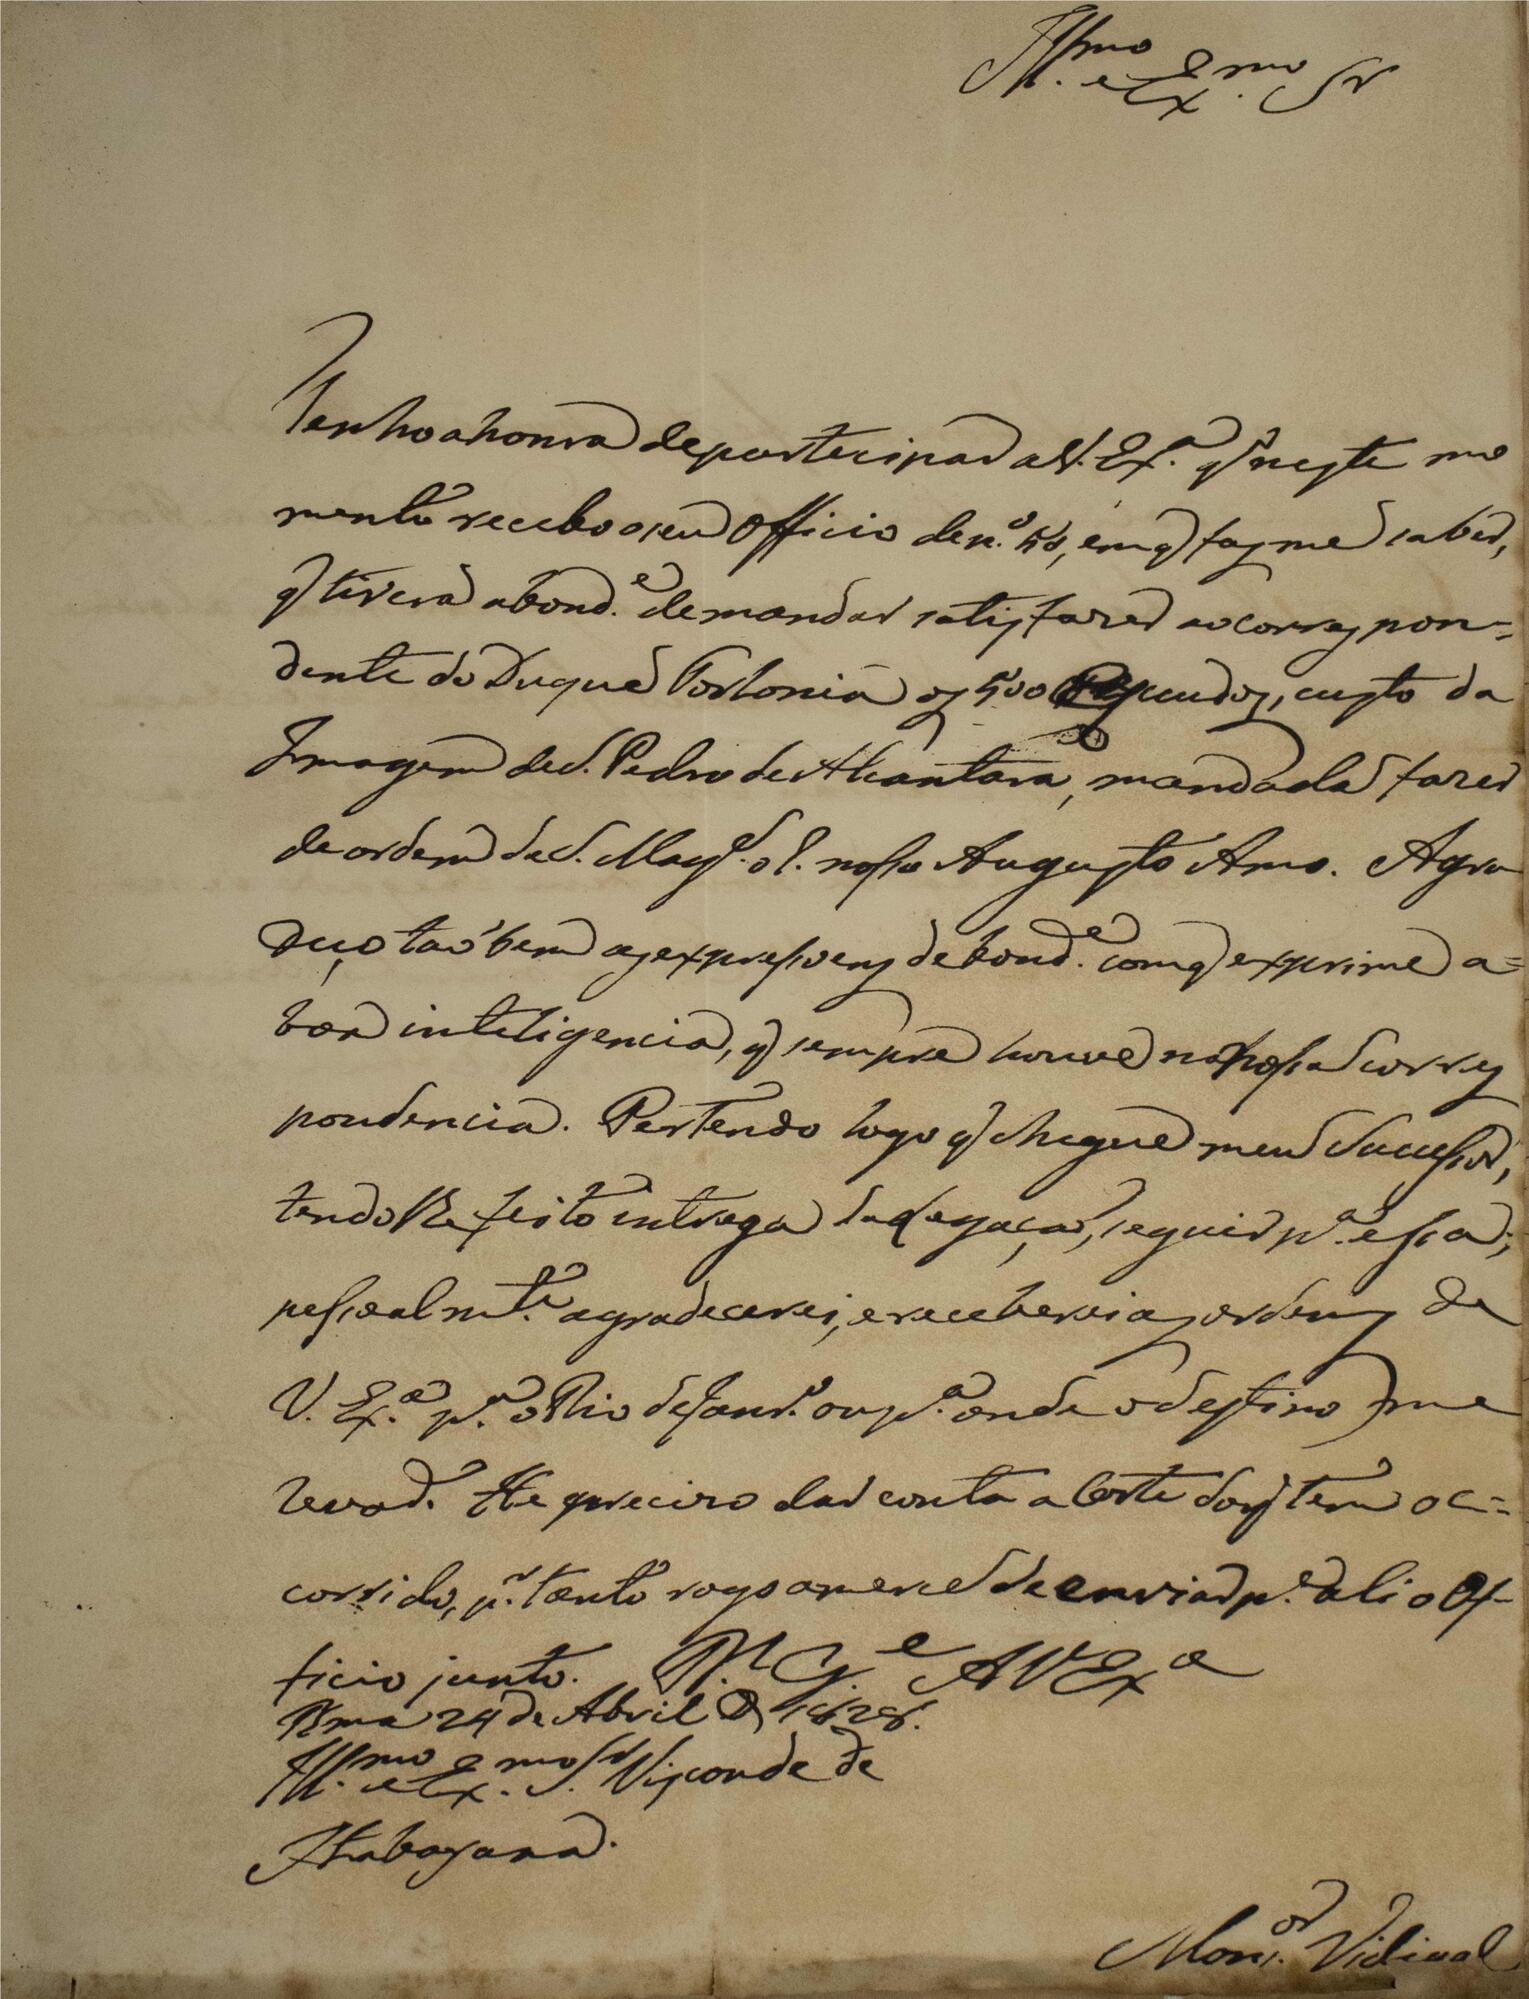 Illmo. e Exmo. Sr
Tenho a honra de partecipar a V. Exa. q neste mo
mento recebo o seu Officio de n.º 58, em q faz me saber,
q tivera a bond.e de mandar satisfazer ao corresponː
dente do Duque Torlonia os 500 Escudos, custo da
Imagem de S. Pedro de Alcantara, mandada fazer
de ordem de S. Mag.e o I. nosso Augusto Amo. Agra
deço taõ bem as expressoens de bond.e com q exprime a=
boa inteligencia, q sempre houve na nossa corres
pondencia. Pertendo logo q chegue meu Sucessor,
tendo lhe feito entrega da Legaçaõ, seguir p.a essa;
pessoalm.te agradecerei, e receberei as ordens de
V. Ex.a p.a o Rio de Jan.ro ou p.a onde o destino me
levar. He preciso dar conta a Corte do q tem oc=
corrido, p.r tanto rogo a merce de enviar p.a ali o Of-
ficio junto. D.s G.e A V Ex.a
Roma 24 de Abril de 1828.
Illmo. e Exmo. Sr. Visconde de
Itabayana.
Mons.or Vidigal